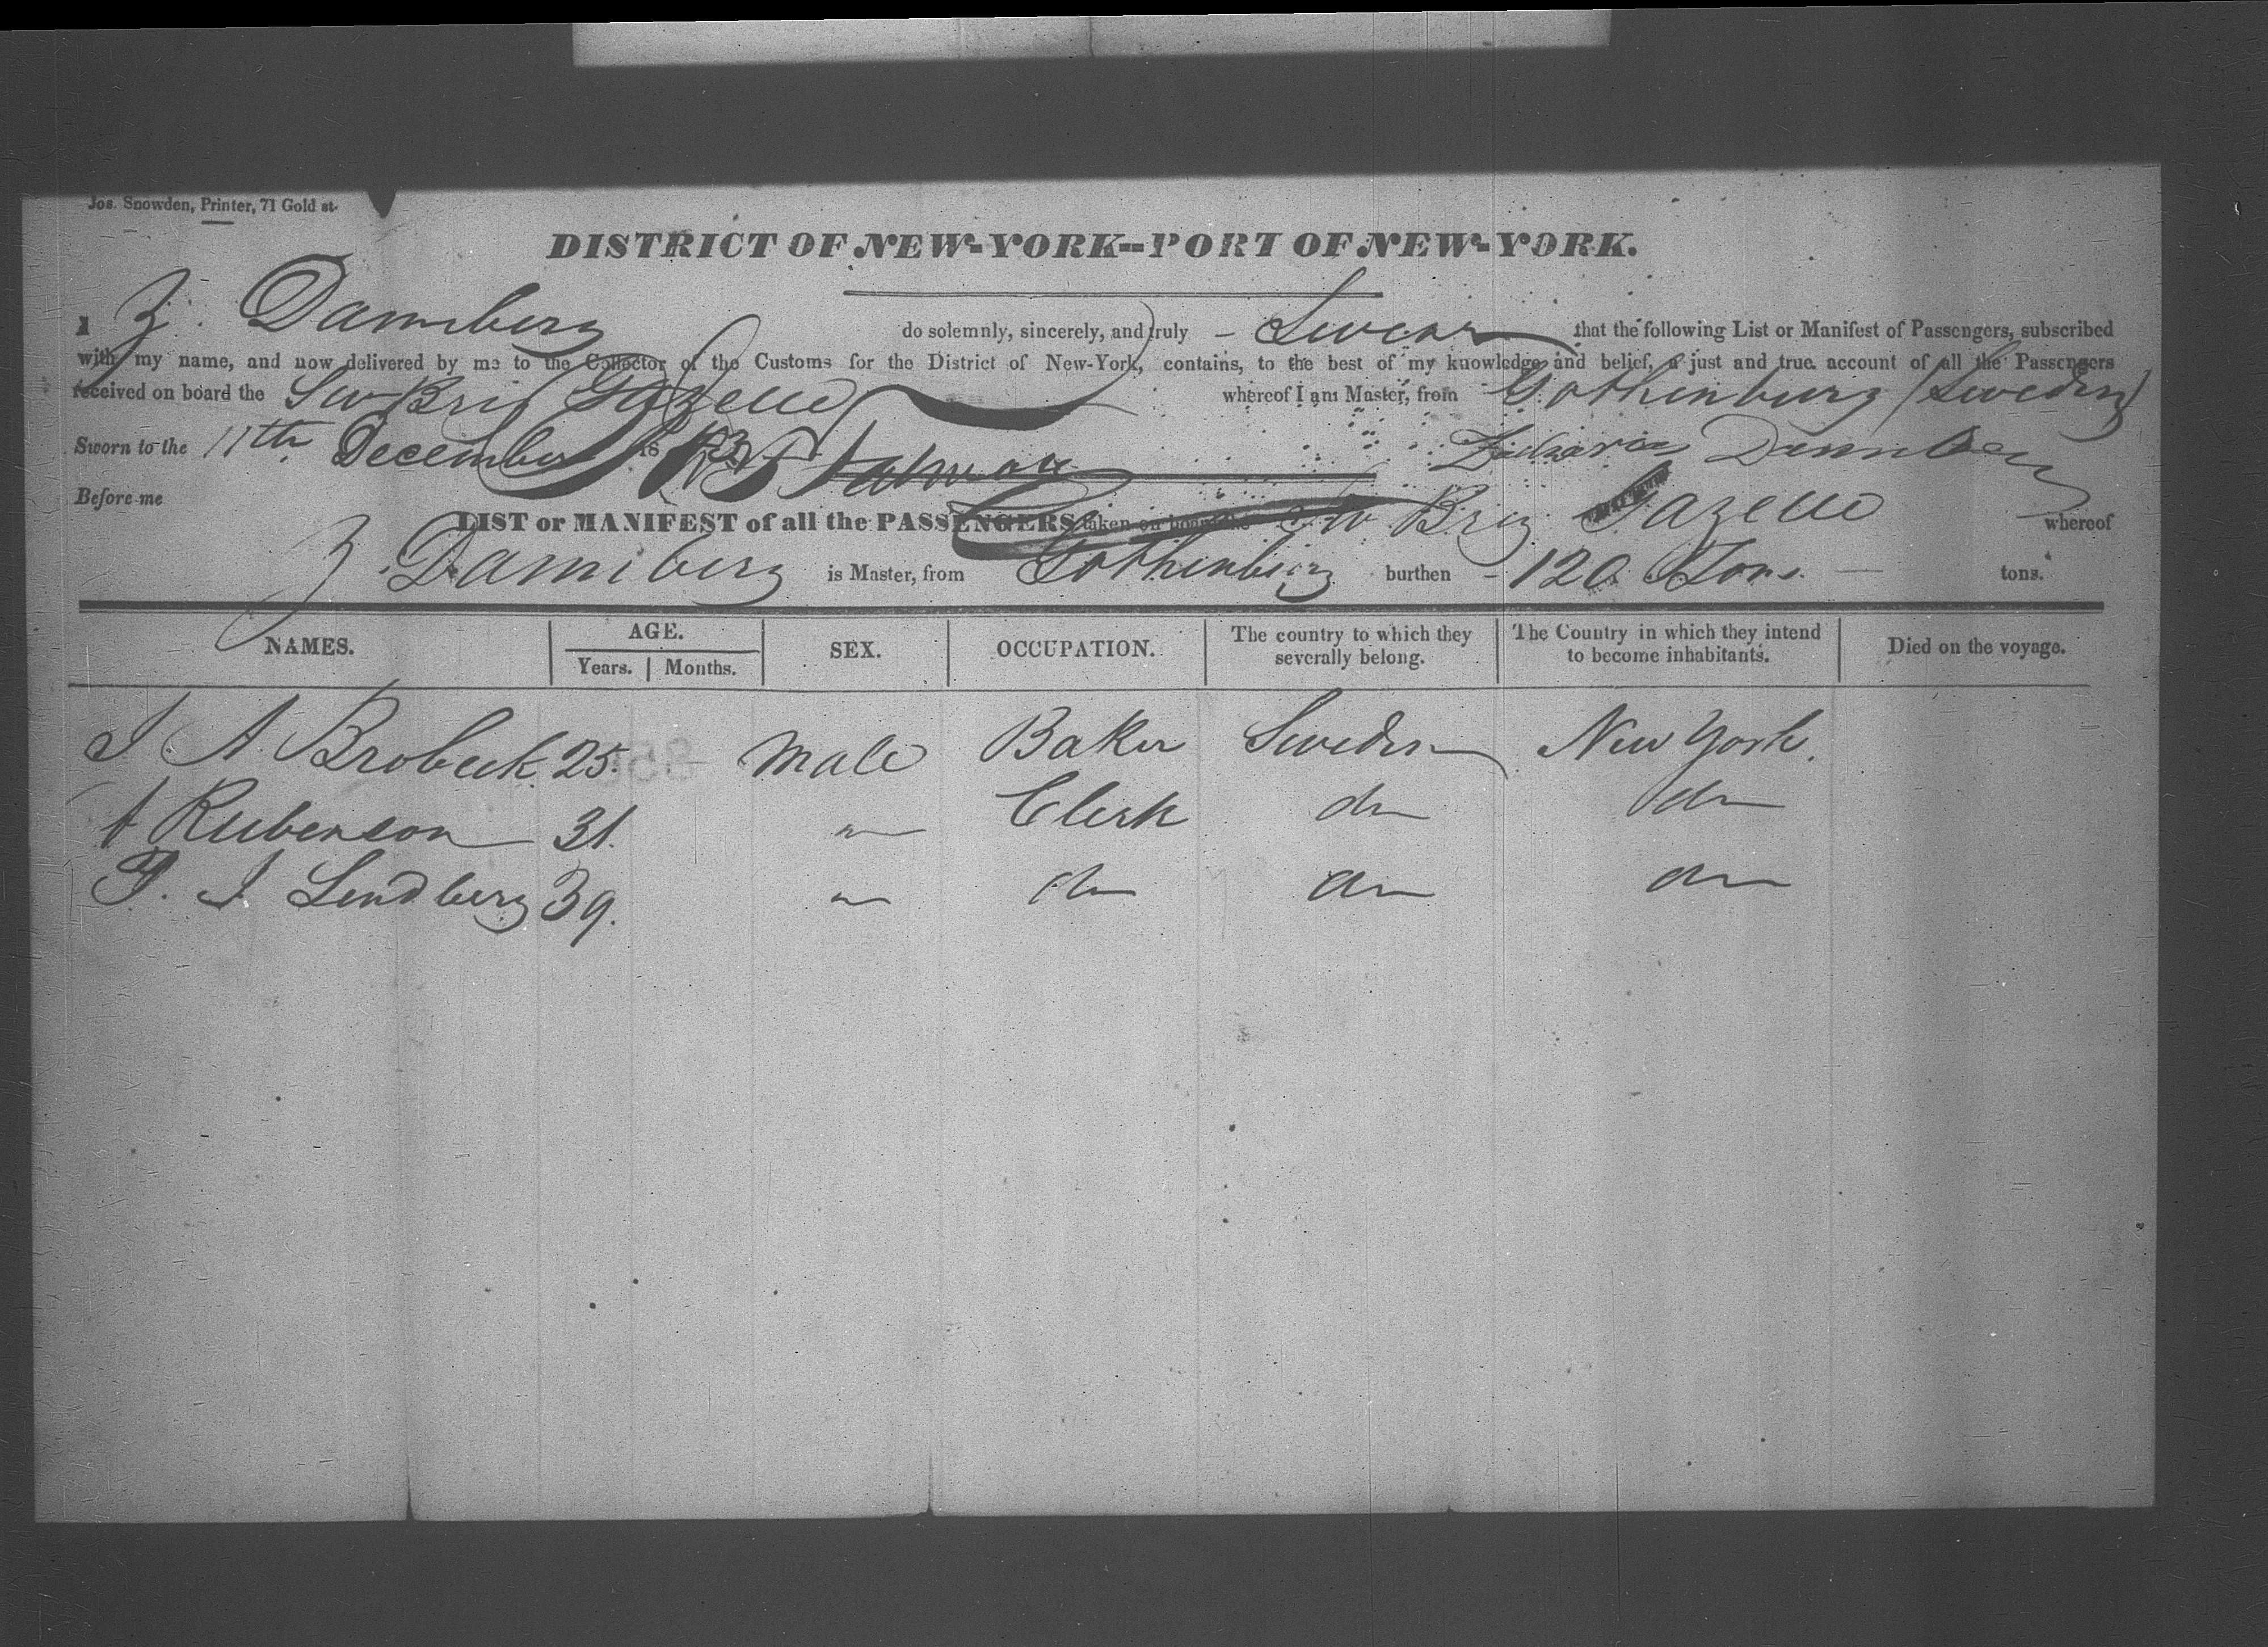 Jos. Snowden, Printer, 71 Gold st.
DISTRICT OF NEW-YORK--PORT OF NEW-YORK.
I Z. Dannberg do solemnly, sincerely, and truly - Swear that the following List or Manifest of Passengers, subscribed
with my name, and now delivered by me to the Collector of the Customs for the District of New-York, contains, to the best of my knowledge and belief, a just and true account of all the Passengers
received on board the Sw Brig Gazelle whereof I am Master, from Gothenburg (Sweden)
Sworn to the 11th December 18 Zacharias Dannberg
Before me
LIST or MANIFEST of all the PASSENGERS taken on board the Sw Brig Gazelle whereof
Z. Dannberg is Master, from Gothenburg burthen - 120 Tons. — tons.
NAMES. AGE. Years. Months. SEX. OCCUPATION. The country to which they severally belong. The Country in which they intend to become inhabitants. Died on the voyage.
J A Brobeck 25. Male Baker Sweden New York.
A Rubenson 31. " Clerk do do
P. J Lendberg 39. " do do do